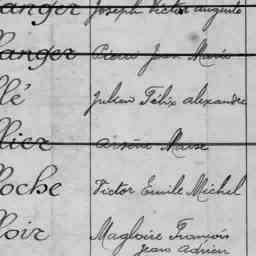 anger Joseph Victor auguste
anger Pierre Jean Marie
lé Julien Félix alexandre
lier Arsène Marie
loche Victor Emile Michel
loir Magloire François
Jean Adrien